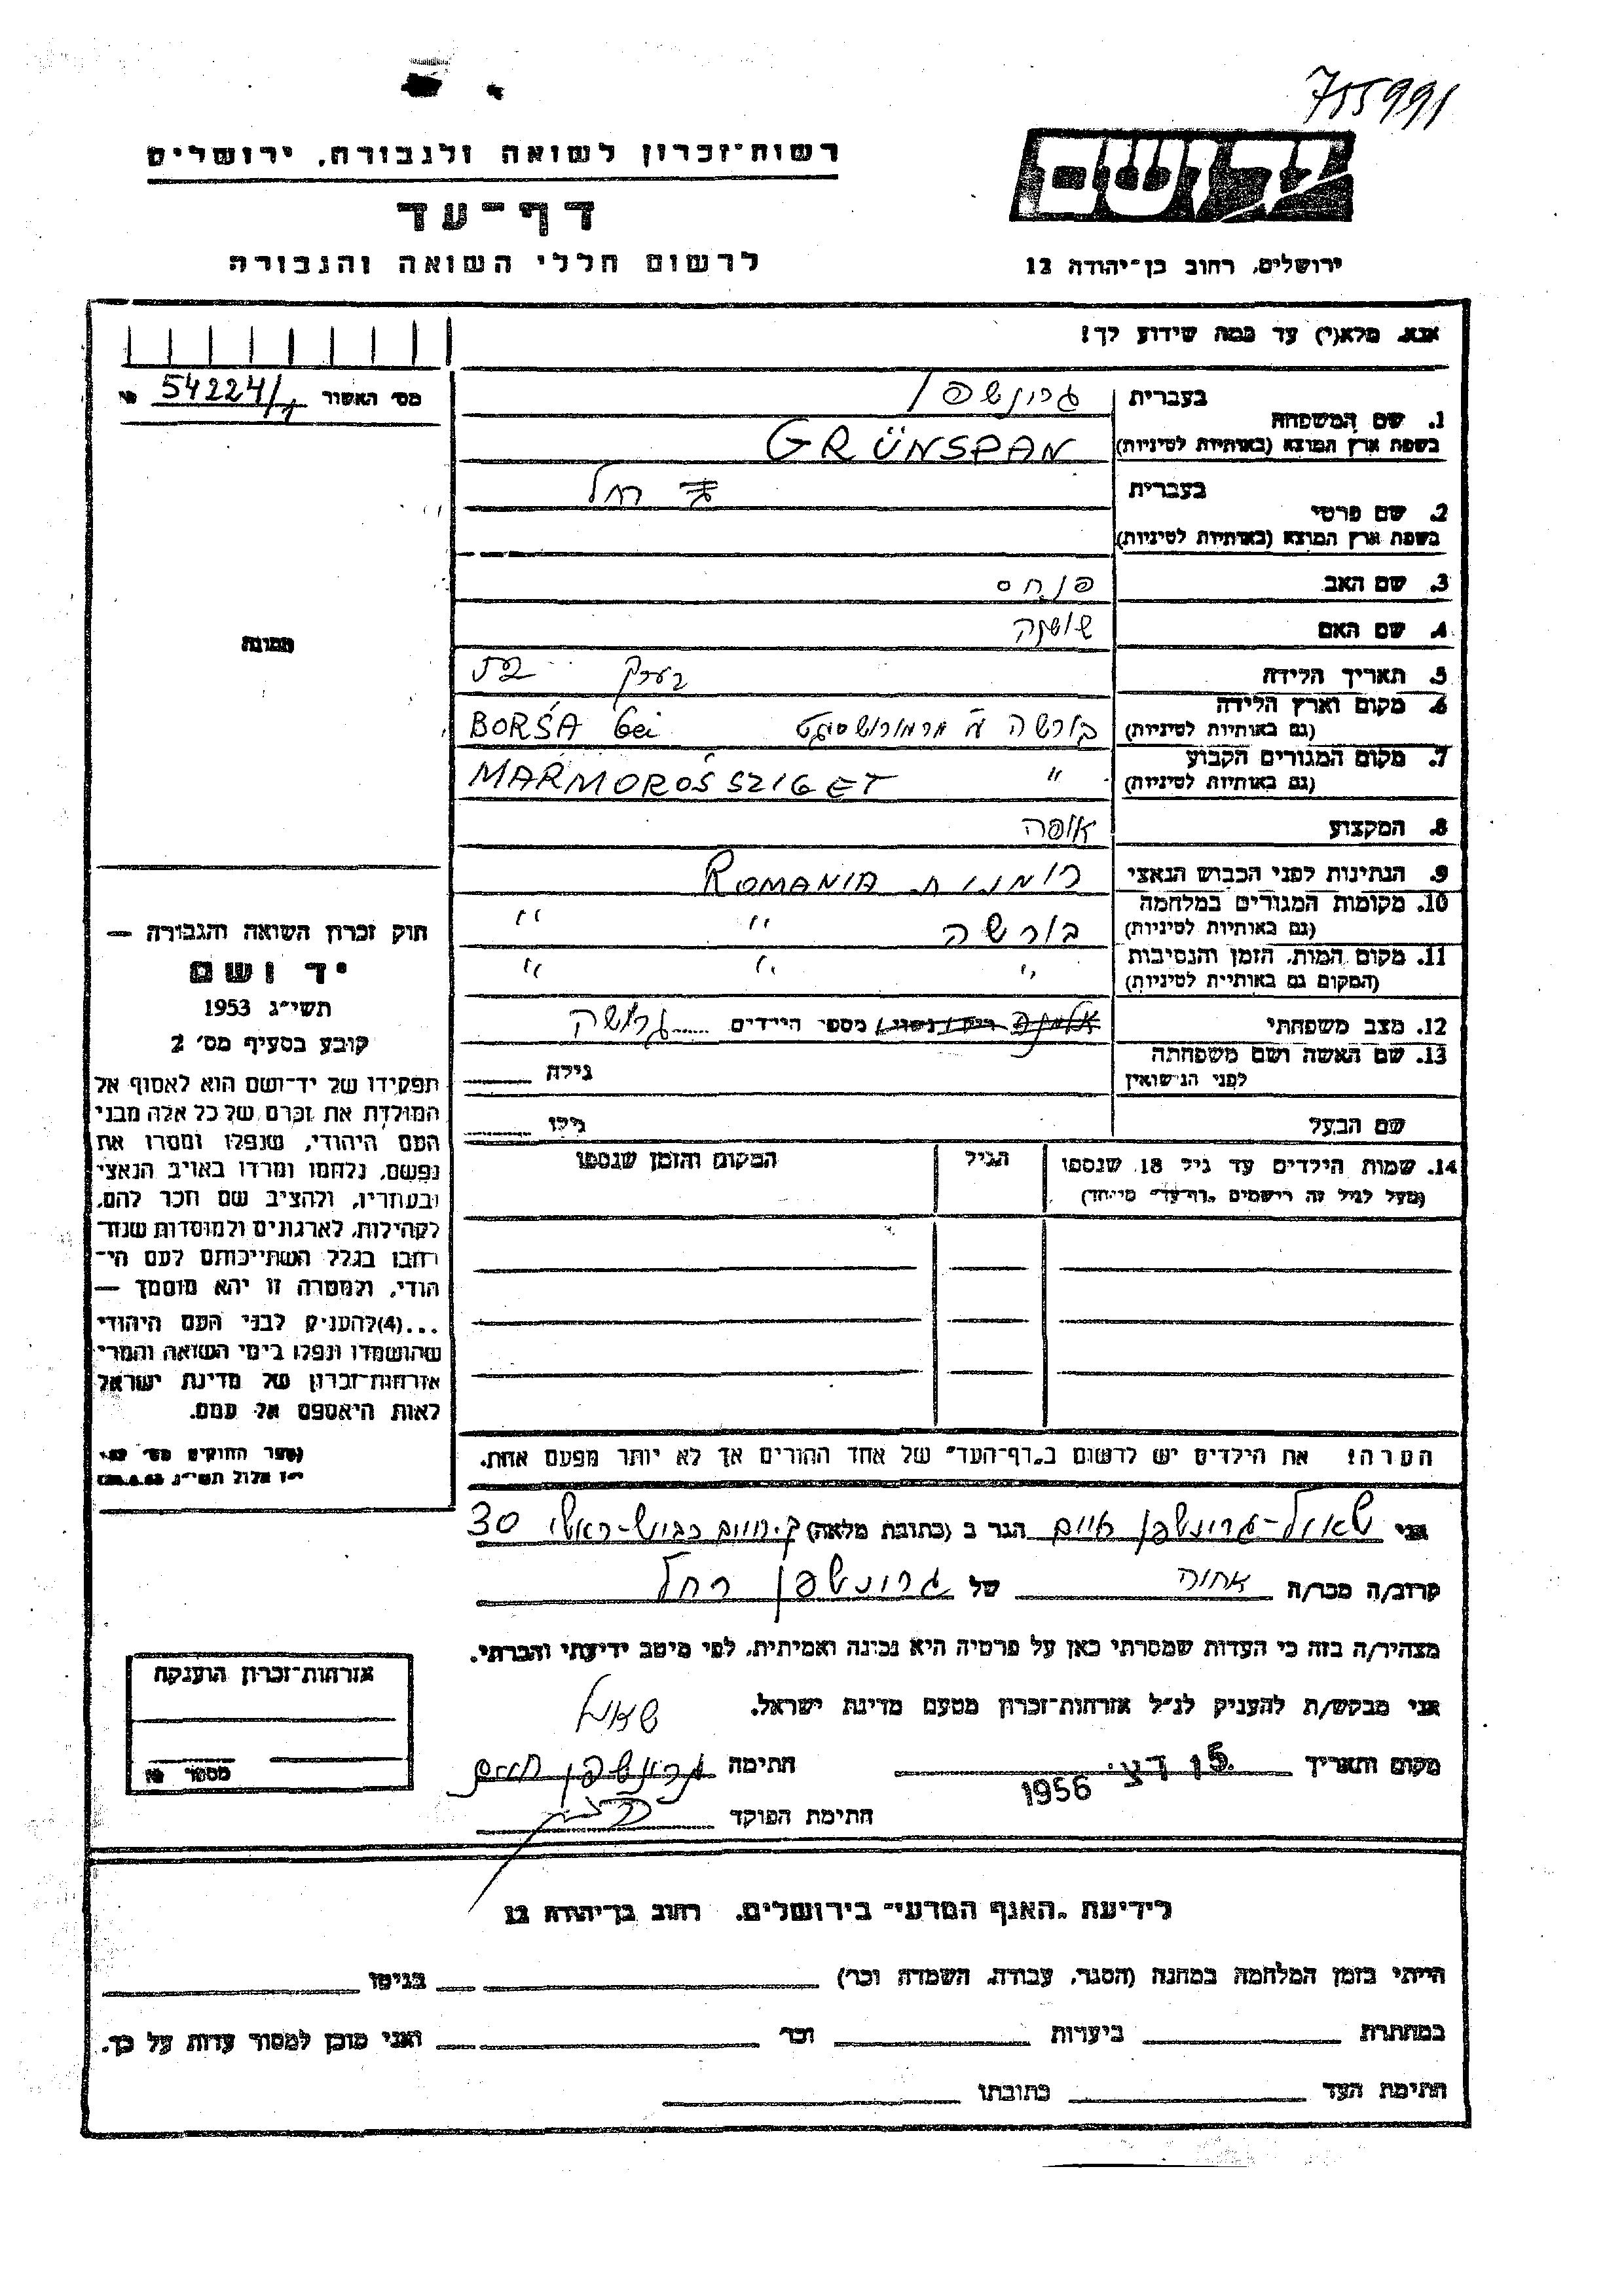 755991
רשות־זכרון לשואה ולגבורה, ירושלים
דף־עד
לרשום חללי השואה והגבורה
יד ושם
ירושלים, רחוב בן־יהודה 12
אנא, מלא(י) עד כמה שידוע לך!
מס׳ האשור 54224/1 №
1. שם המשפחה
בעברית גרונשפן
בשפת ארץ המוצא (באותיות לטיניות) GRÜNSPAN
2. שם פרטי
בעברית רחל
בשפת ארץ המוצא (באותיות לטיניות)
3. שם האב פנחס
4. שם האם שושנה
5. תאריך הלידה בערך
6. מקום וארץ הלידה
(גם באותיות לטיניות) בורשה BORŚA bei
7. מקום המגורים הקבוע
(גם באותיות לטיניות) " MARMOROSSZIGET
8. המקצוע אופה
9. הנתינות לפני הכבוש הנאצי רומנית ROMANIA
10. מקומות המגורים במלחמה
(גם באותיות לטיניות) בורשה " "
11. מקום המות, הזמן והנסיבות
(המקום גם באותיות לטיניות) " " "
12. מצב משפחתי מספר הילדים גרושה
13. שם האשה ושם משפחתה
לפני הנישואין גילה
שם הבעל גילו
14. שמות הילדים עד גיל 18 שנספו הגיל המקום והזמן שנספו
(מעל לגיל זה רושמים „דף־עד״ מיוחד)
תמונה
חוק זכרון השואה והגבורה —
יד ושם
תשי״ג 1953
קובע בסעיף מס׳ 2
תפקידו של יד־ושם הוא לאסוף אל
המולדת את זכרם של כל אלה מבני
העם היהודי, שנפלו ומסרו את
נפשם, נלחמו ומרדו באויב הנאצי
ובעוזריו, ולהציב שם וזכר להם,
לקהילות, לארגונים ולמוסדות שנח־
רבו בגלל השתייכותם לעם הי־
הודי, ולמטרה זו יהא מוסמך —
...(4)להעניק לבני העם היהודי
שהושמדו ונפלו בימי השואה והמרי
אזרחות־זכרון של מדינת ישראל
לאות היאספם אל עמם.
הערה! את הילדים יש לרשום ב„דף־העד״ של אחד ההורים אך לא יותר מפעם אחת.
אני שאול-גרונשפן חיים הגר ב (כתובת מלאה) ק. חיים 30
קרוב/ה מכר/ה אחות של גרונשפן רחל
מצהיר/ה בזה כי העדות שמסרתי כאן על פרטיה היא נכונה ואמיתית, לפי מיטב ידיעתי והכרתי.
אני מבקש/ת להעניק לנ״ל אזרחות־זכרון מטעם מדינת ישראל.
שאול
מקום ותאריך דצ׳ 1956 חתימה גרונשפן חיים
חתימת הפוקד
אזרחות־זכרון הוענקה
מספר №
לידיעת „האגף המדעי״ בירושלים, רחוב בן־יהודה 12
הייתי בזמן המלחמה במחנה (הסגר, עבודה, השמדה וכו׳) בגיטו
במחתרת ביערות וכו׳ ואני מוכן למסור עדות על כך.
חתימת העד כתובתו